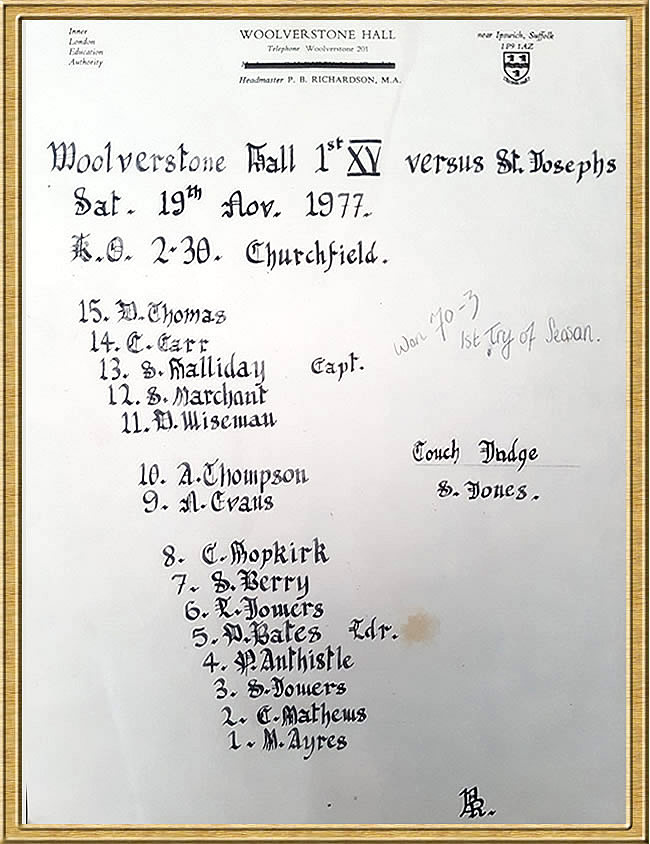 Inner
London
Education
Authority
WOOLVERSTONE HALL
Telephone Woolverstone 201
Headmaster P. B. RICHARDSON, M.A.
near Ipswich, Suffolk
IP9 1AZ
Woolverstone Hall 1st XV versus St. Josephs
Sat. 19th Nov. 1977.
K.O. 2-30. Churchfield.
15. D. Thomas
14. C. Carr
13. S. Halliday Capt.
12. S. Marchant
11. D. Wiseman
Won 70-3
1st Try of Season.
10. A. Thompson
9. N. Evans
Touch Judge
S. Jones.
8. C. Hopkirk
7. S. Berry
6. Jowers
5. Bates Ldr.
4. P. Anthistle
3. S. Jowers
2. C. Mathews
1. M. Ayres